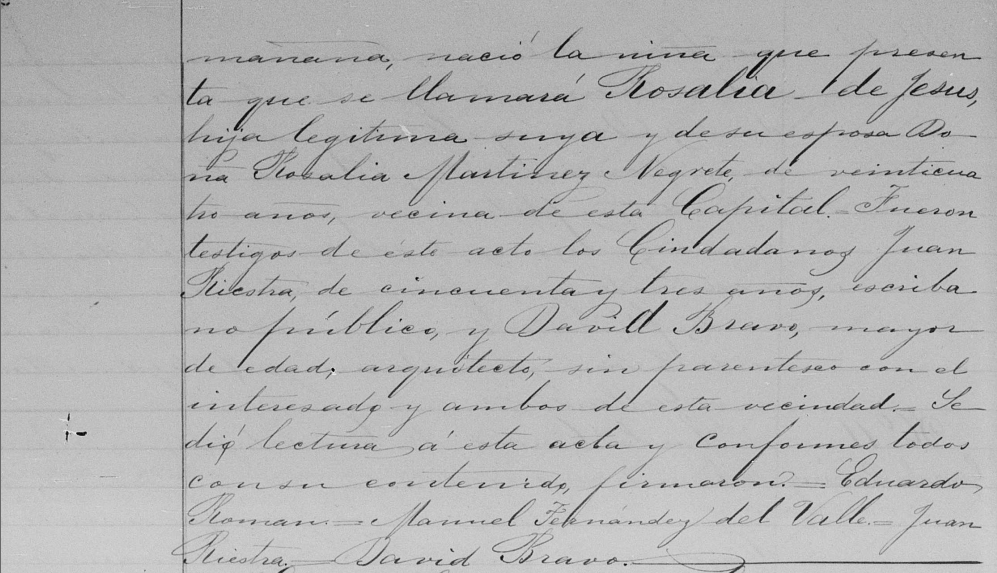 mañana, nació la niña que presen
ta que se llamará Rosalia de Jesus,
hija legitima suya y de su esposa Do
ña Rosalia Martinez Negrete, de veinticua
tro años, vecina de esta Capital.= Fueron
testigos de éste acto los Ciudadanos Juan
Riestra, de cincuenta y tres años, escriba
no público, y David Bravo, mayor
de edad, arquitecto, sin parentesco con el
interesado y ambos de esta vecindad.= Se
dió lectura á esta acta y conformes todos
con su contenido, firmaron.= Eduardo
Roman.= Manuel Fernández del Valle.= Juan
Riestra.= David Bravo.